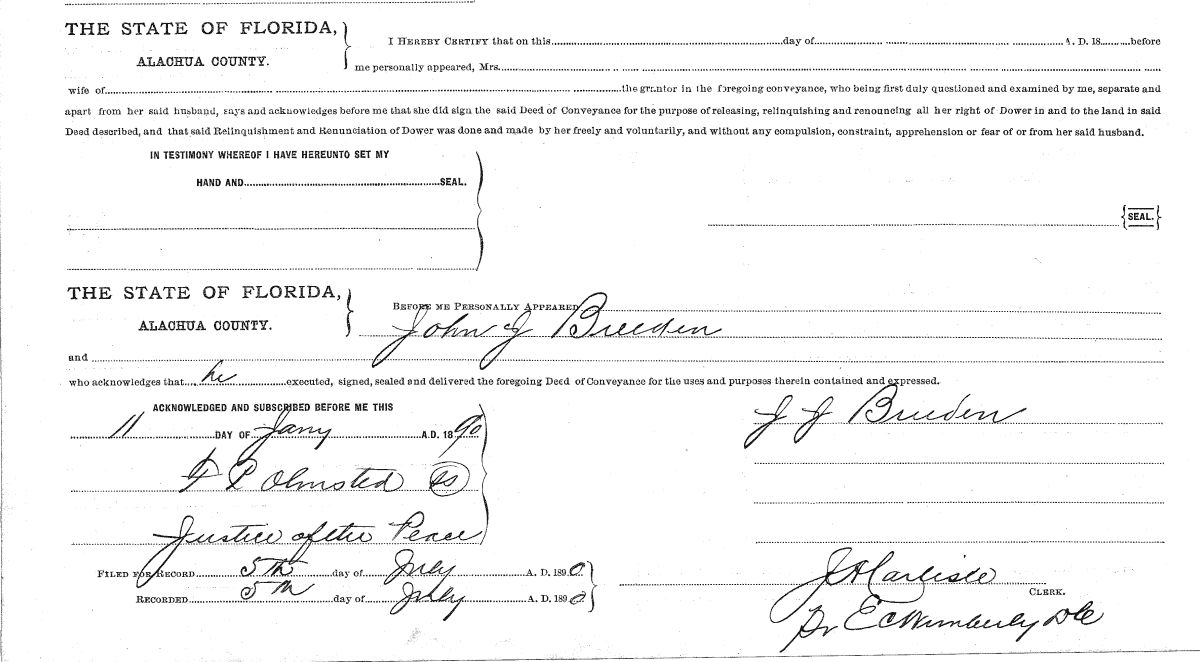 THE STATE OF FLORIDA,
ALACHUA COUNTY.
I HEREBY CERTIFY that on this day of A. D. 18 before
me personally appeared, Mrs.
wife of the grantor in the foregoing conveyance, who being first duly questioned and examined by me, separate and
apart from her said husband, says and acknowledges before me that she did sign the said Deed of Conveyance for the purpose of releasing, relinquishing and renouncing all her right of Dower in and to the land in said
Deed described, and that said Relinquishment and Renunciation of Dower was done and made by her freely and voluntarily, and without any compulsion, constraint, apprehension or fear of or from her said husband.
IN TESTIMONY WHEREOF I HAVE HEREUNTO SET MY
HAND AND SEAL.
SEAL.
THE STATE OF FLORIDA,
ALACHUA COUNTY.
BEFORE ME PERSONALLY APPEARED
John J Breeden
and
who acknowledges that he executed, signed, sealed and delivered the foregoing Deed of Conveyance for the uses and purposes therein contained and expressed.
ACKNOWLEDGED AND SUBSCRIBED BEFORE ME THIS
11 DAY OF Jany A.D. 1890
J J Breeden
F P Olmsted
Justice of the Peace
FILED FOR RECORD 5th day of July A. D. 1890
RECORDED 5th day of July A. D. 1890
J A Carlisle
CLERK.
Pr E C Wimberly D C